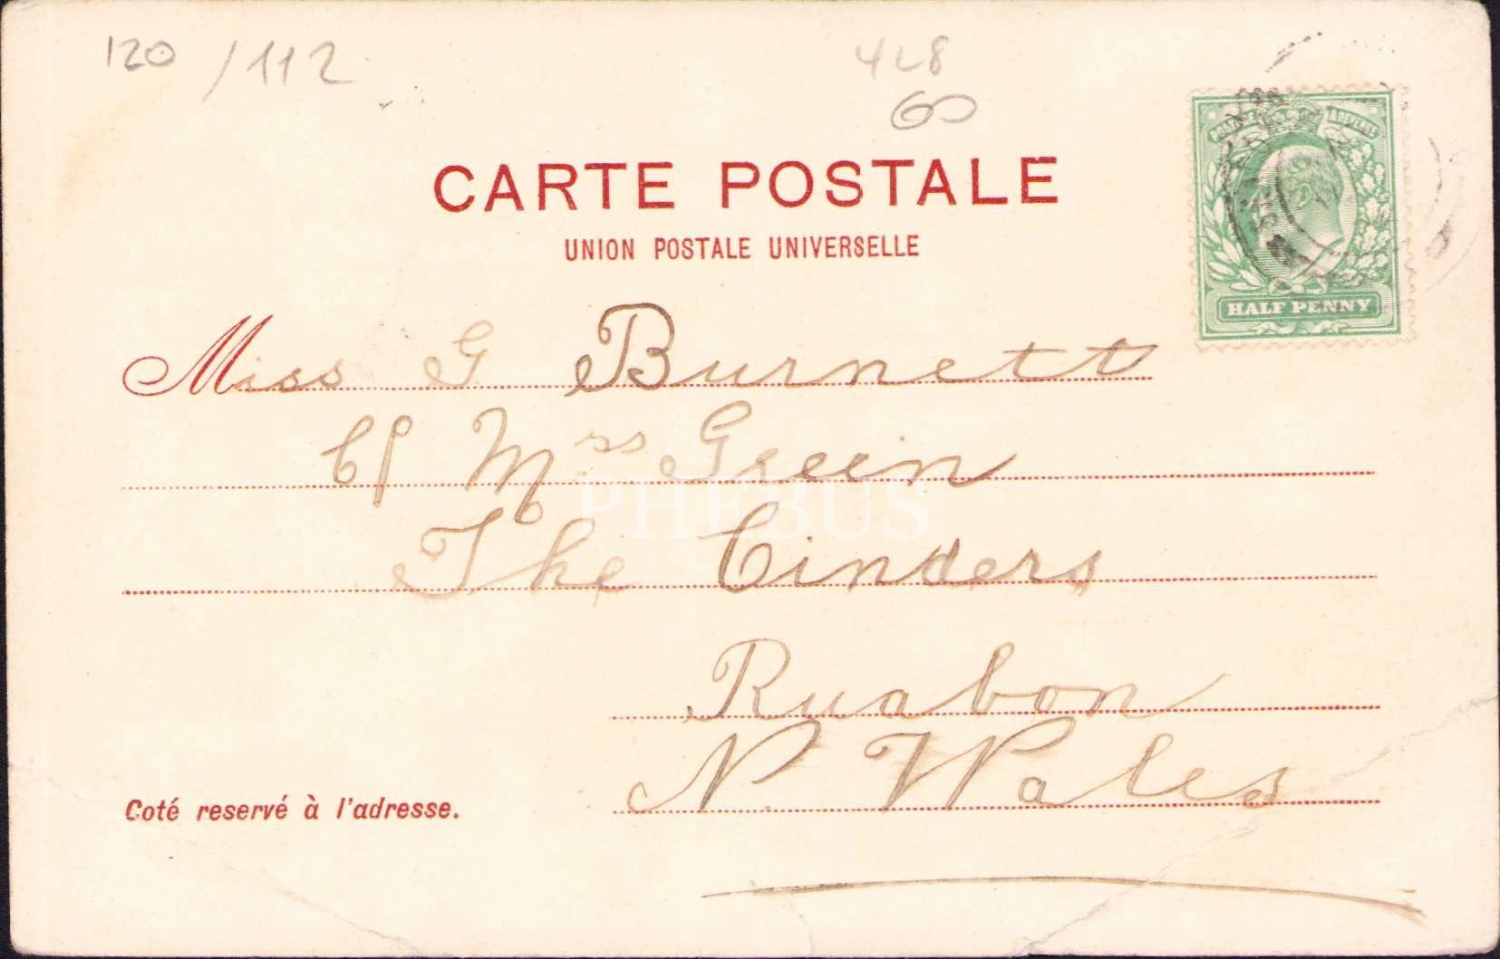 120 / 112
428
60
CARTE POSTALE
UNION POSTALE UNIVERSELLE
POSTAGE & REVENUE
HALF PENNY
Miss G Burnett
C/ Mrs Green
PHEBUS
The Cinders
Ruabon
N. Wales
Coté reservé à l'adresse.